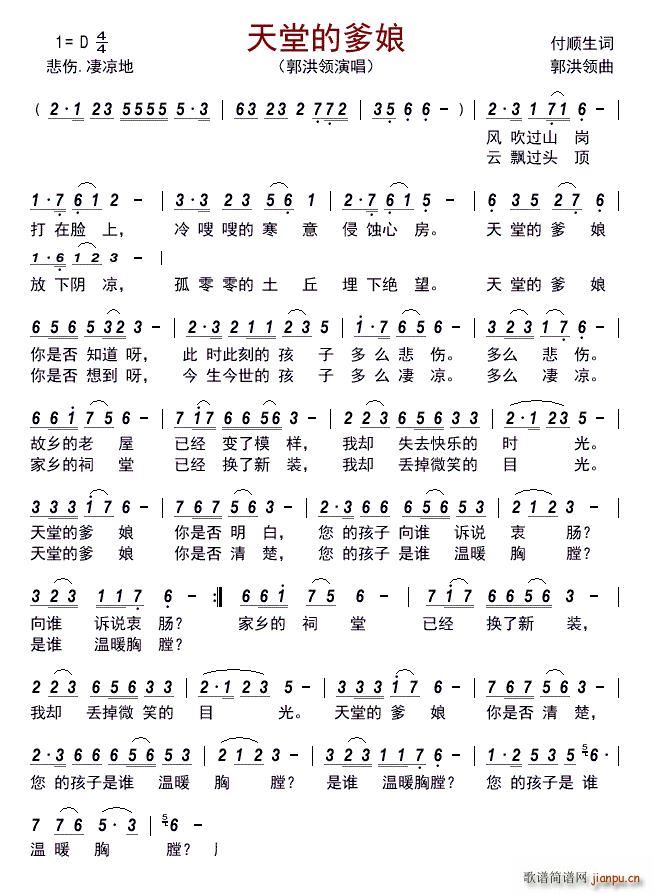 天堂的爹娘
1= D 4/4
付顺生词
悲伤.凄凉地
（郭洪领演唱）
郭洪领曲
( 2·31 23 5555 5·3 | 6·3 2 3 2 7 7 2 | 3 5 6 6 6 - ) | 2·3 1 71 6 - |
风 吹过山 岗
云 飘过头 顶
1·7 6 1 2 - | 3·3 2 3 5 6 1 | 2·7 6 1 5 - | 6 3 5 2 7 6 |
打 在脸 上， 冷 嗖 嗖的 寒 意 侵 蚀心 房。 天 堂的 爹 娘
1·6 1 2 3 - |
放 下阴 凉， 孤 零 零的 土 丘 埋 下绝 望。 天 堂的 爹 娘
6 5 6 5 3 2 3 - | 2·3 2 1 2 3 5 | 1·7 6 5 6 - | 3 2 3 1 7 6 - |
你是否 知道 呀， 此 时此刻的 孩 子 多 么 悲 伤。 多么 悲 伤。
你是否 想到 呀， 今 生今世的 孩 子 多 么 凄 凉。 多么 凄 凉。
6 6 1 7 5 6 - | 7 1 7 6 6 5 3 | 2 2 3 6 5 6 5 3 3 | 2·1 2 3 5 - |
故乡的 老 屋 已经 变了模 样， 我却 失去快乐的 时 光。
家乡的 祠 堂 已经 换了新 装， 我却 丢掉微笑的 目 光。
3 3 3 1 7 6 - | 7 6 7 5 2 3 - | 2·3 6 6 5 6 5 3 | 1 2 5 2 - |
天堂的 爹 娘 你是否 明 白， 您 的孩子 向谁 诉说 衷 肠？
天堂的 爹 娘 你是否 清 楚， 您 的孩子 是谁 温暖 胸 膛？
3 2 3 1 1 7 6 - :| 6 6 1 7 5 6 - | 7 1 7 6 6 5 3 - |
向谁 诉说衷 肠？ 家乡的 祠 堂 已经 换了新 装，
是谁 温暖胸 膛？
2 2 3 6 5 6 5 3 3 | 2·1 2 3 5 - | 3 3 3 1 7 6 - | 7 6 7 6 5 2 3 - |
我却 丢掉微 笑的 目 光。 天堂的 爹 娘 你是否 清 楚，
2·3 6 6 5 6 5 3 | 1 2 5 2 - | 3 2 3 1 1 7 6 - | 1·2 5 3 5 6 - |
您 的孩子是谁 温暖 胸 膛？ 是谁 温暖胸膛？ 您 的孩子是 谁
7 7 6 5·3 | 6 - |
温 暖 胸 膛？
歌谱简谱网
jianpu.cn